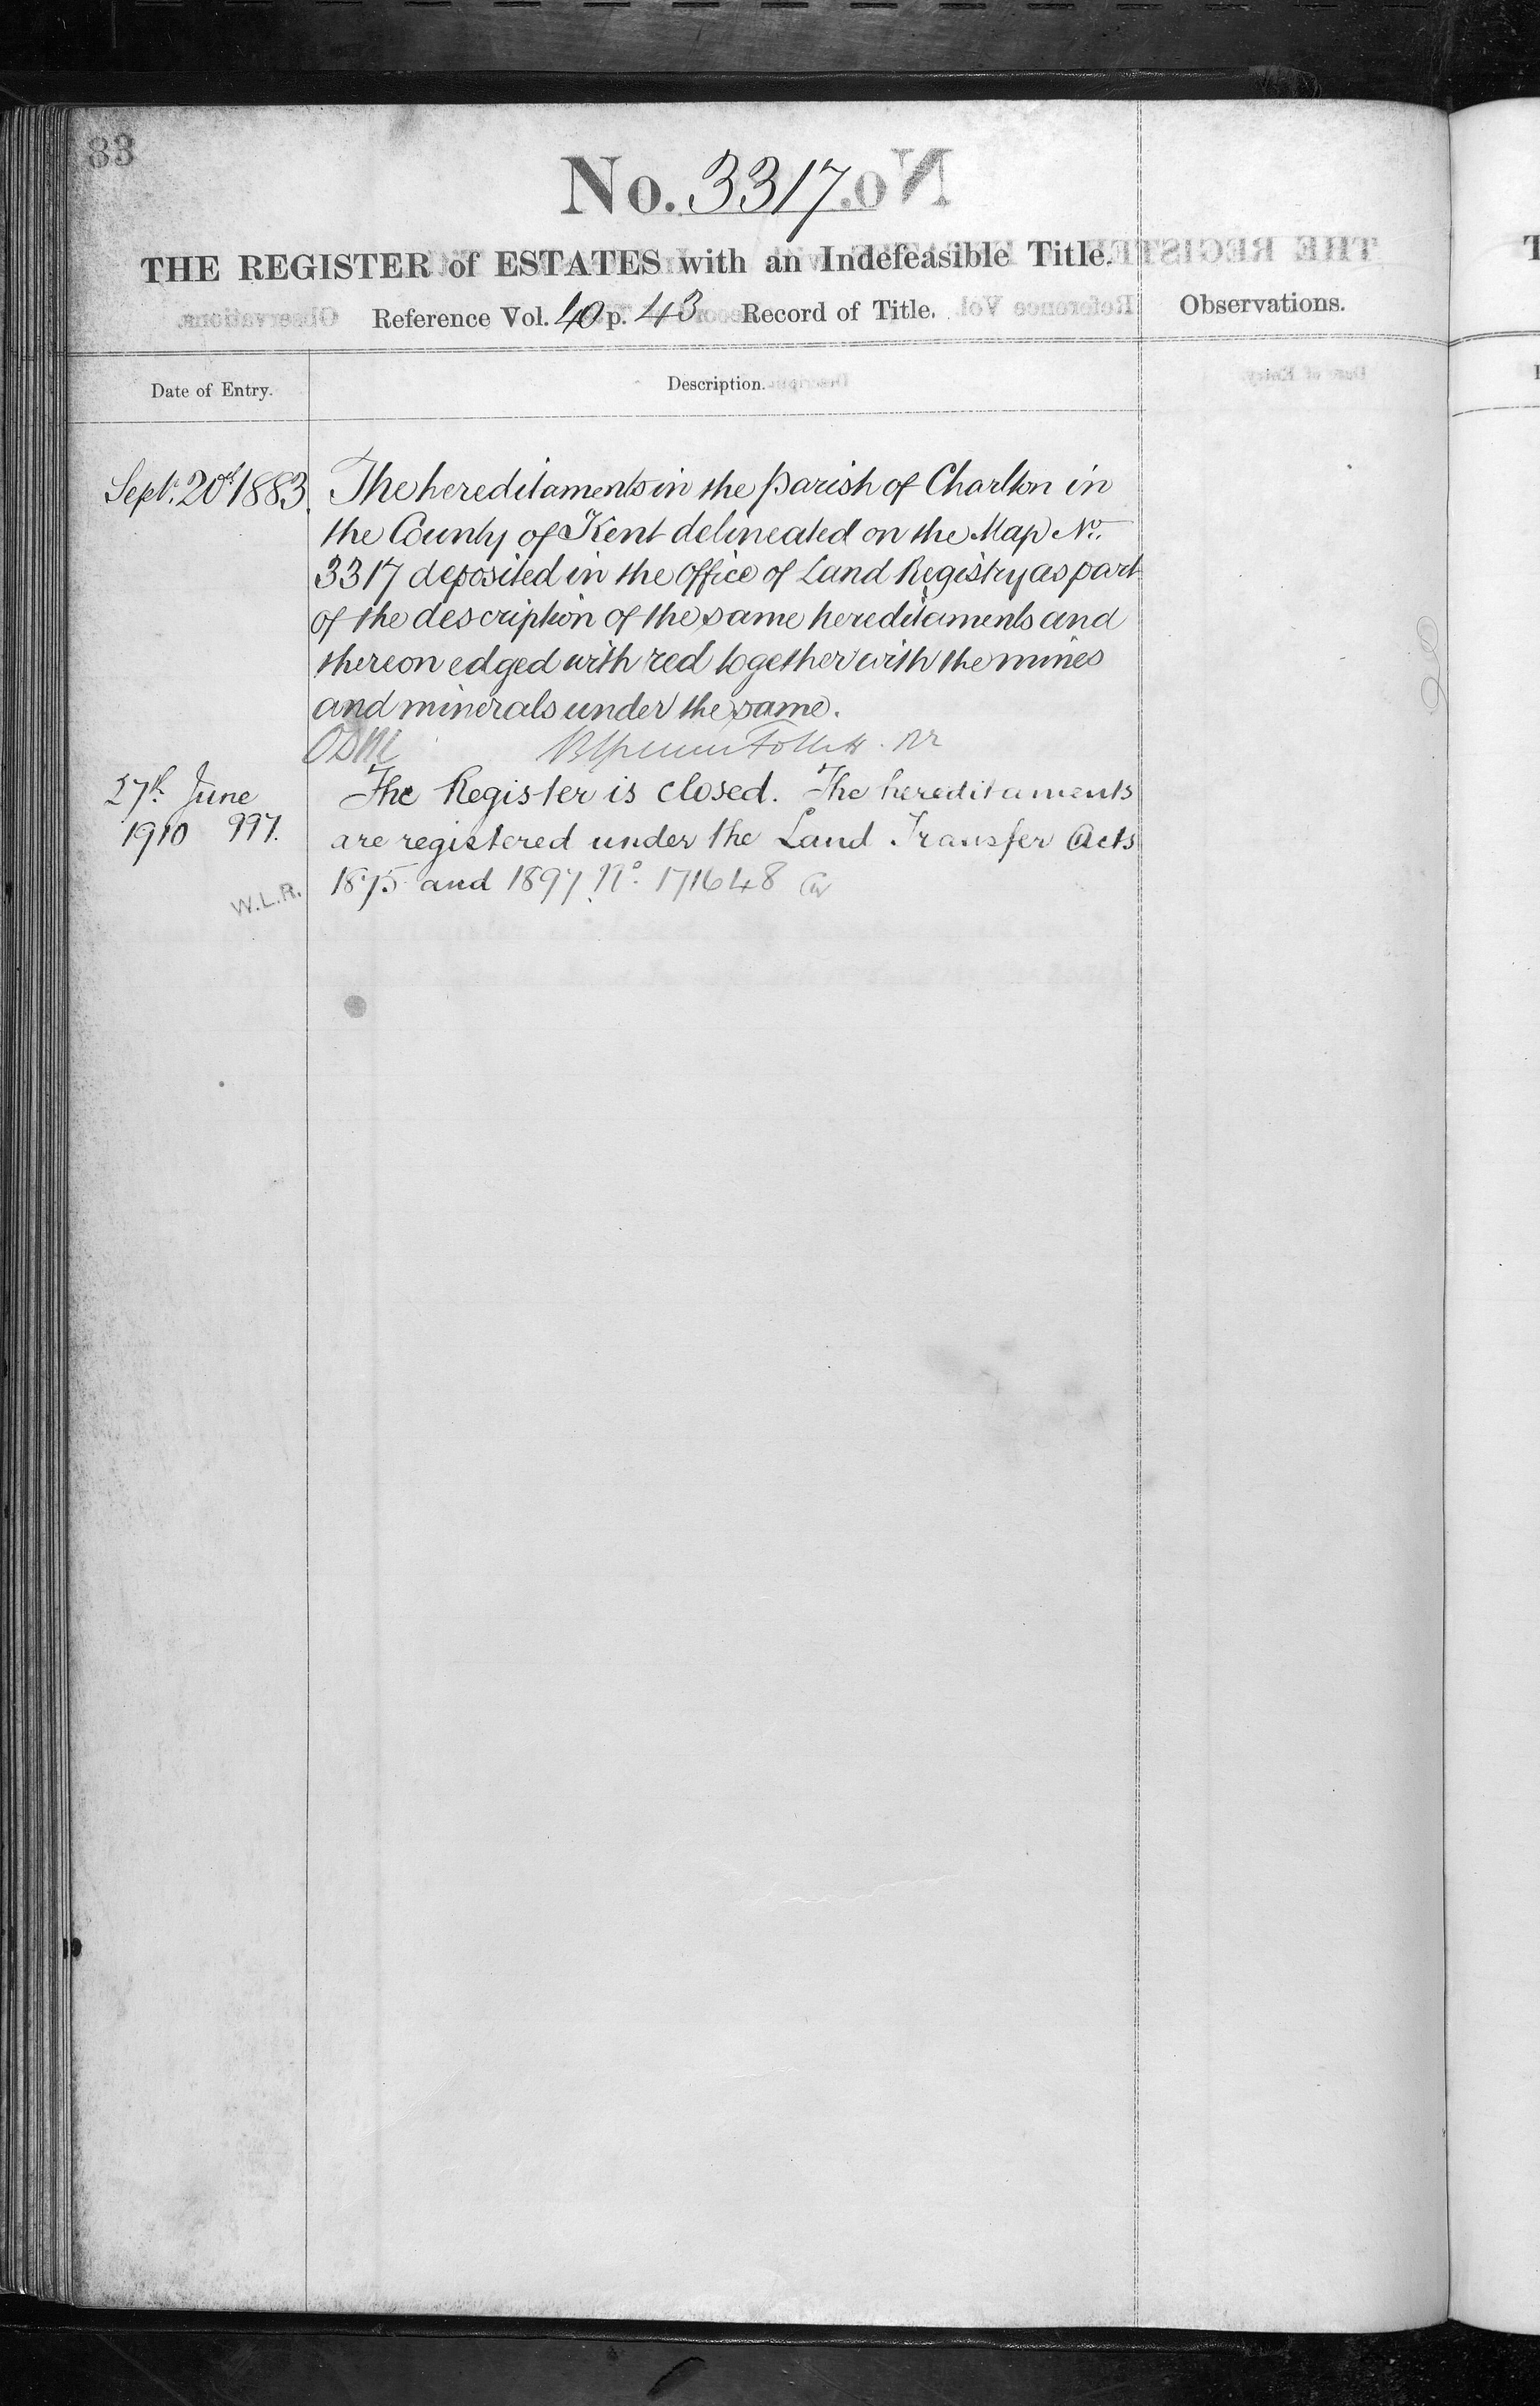 83
No. 3317
THE REGISTER of ESTATES with an Indefeasible Title.
Reference Vol. 40 p. 43 Record of Title.
Observations.
Date of Entry.
Description.
Sept. 20th 1883.
The hereditaments in the parish of Charlton in
the County of Kent delineated on the Map No.
3317 deposited in the Office of Land Registry as part
of the description of the same hereditaments and
thereon edged with red together with the mines
and minerals under the same.
27th June
1910 997.
W.L.R.
The Register is closed. The hereditaments
are registered under the Land Transfer Acts
1875 and 1897 No. 171648